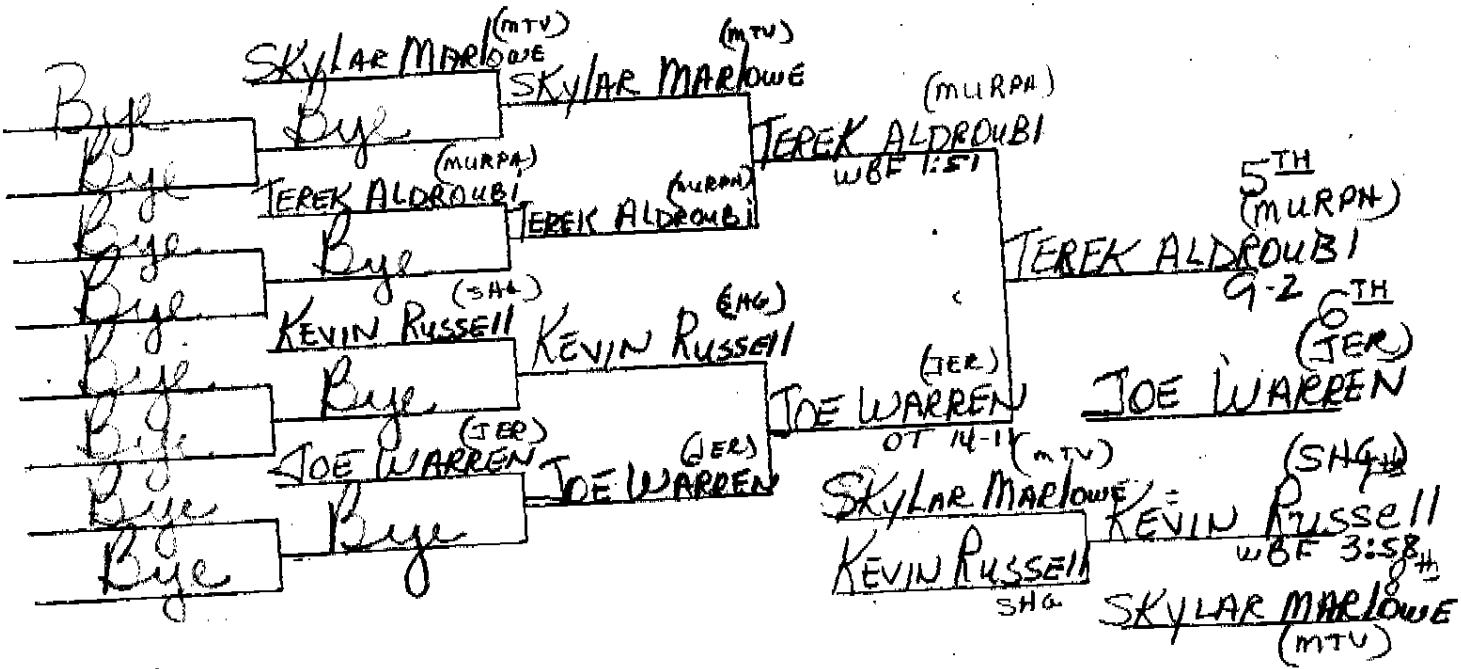 Bye
Bye
Bye
Bye
Bye
Bye
Bye
Bye
SKYLAR MARlOWE (MTV)
Bye
TEREK ALDROUBI (MURPH)
Bye
KEVIN RUSSEll (SHG)
Bye
JOE WARREN (JER)
Bye
SKYlAR MARlOWE (MTV)
TEREK ALDROUBI (MURPH)
KEVIN RUSSEll (SHG)
JOE WARREN (JER)
TEREK ALDROUBI (MURPH)
WBF 1:51
JOE WARREN (JER)
OT 14-11
TEREK ALDROUBI
9-2
5TH
(MURPH)
6TH
(JER)
JOE WARREN
SKYLAR MARlOWE (MTV)
KEVIN RUSSEll
SHG
(SHG)
KEVIN RUSSEll
WBF 3:58
8th
SKYLAR MARlOWE
(MTV)